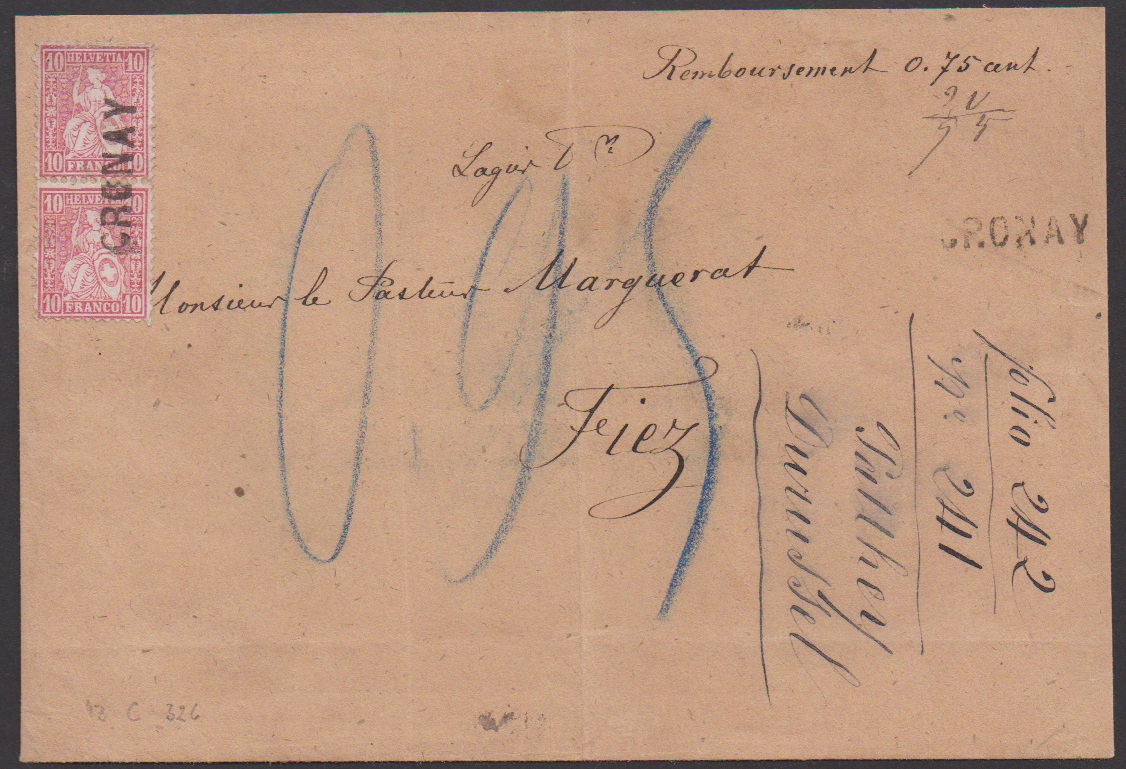 10 HELVETIA 10
10 FRANCO 10
10 HELVETIA 10
10 FRANCO 10
CRONAY
Remboursement 0.75 cent.
CRONAY
Monsieur le Pasteur Marguerat
Fiez
095
folio 242
N° 241
Tauhey
Durussel
C 326